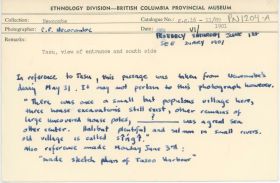 ETHNOLOGY DIVISION—BRITISH COLUMBIA PROVINCIAL MUSEUM
Ethnic Unit: Newcombe
Catalogue No.: PN1204-A
Photographer: C.F. Newcombe
Date: VI/1901
PROBABLY SATURDAY JUNE 1ST
SEE DIARY 1901
Remarks:
Tasu, view of entrance and south side
In reference to Tasu, this passage was taken from Newcombe's
diary May 31. It may not pertain to this photograph however.
"There was once a small but populous village here,
three house excavations still exist, other remains of
large uncovered house poles, ? was a great sea
otter center. Halibut plentiful and salmon in small rivers.
old village is called
Also reference made Monday June 3rd:
"made sketch plan of Tasoo Harbour"